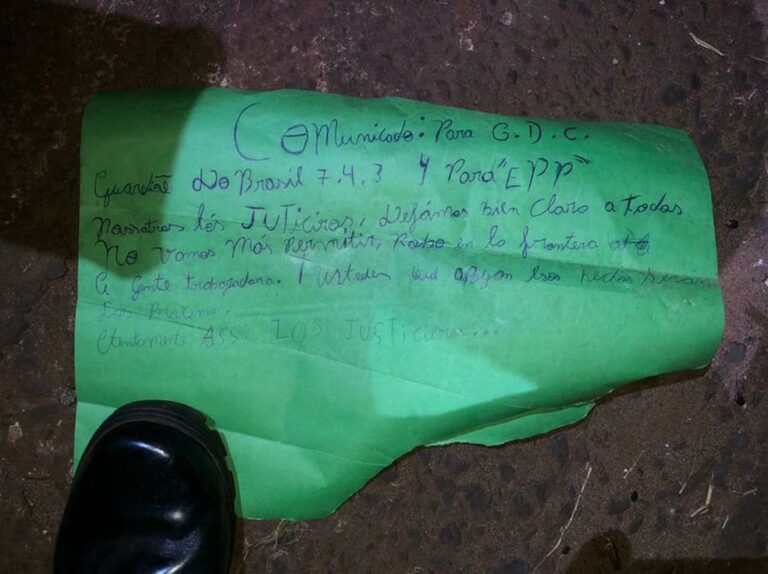 Comunicado: Para G.D.C.
Guardiãe do Brasil 7.4.3 Y Para "EPP"
Nasotros lós JUTiciros, Dejámos bien Claro a todas
No vamos Más Permitir, Robo en la frontera
a gente trabajadora. Y ustedes que apoyan esos hechos seran
Los Proximo.
Atentamente, ASS. LOS JUSTicieros...